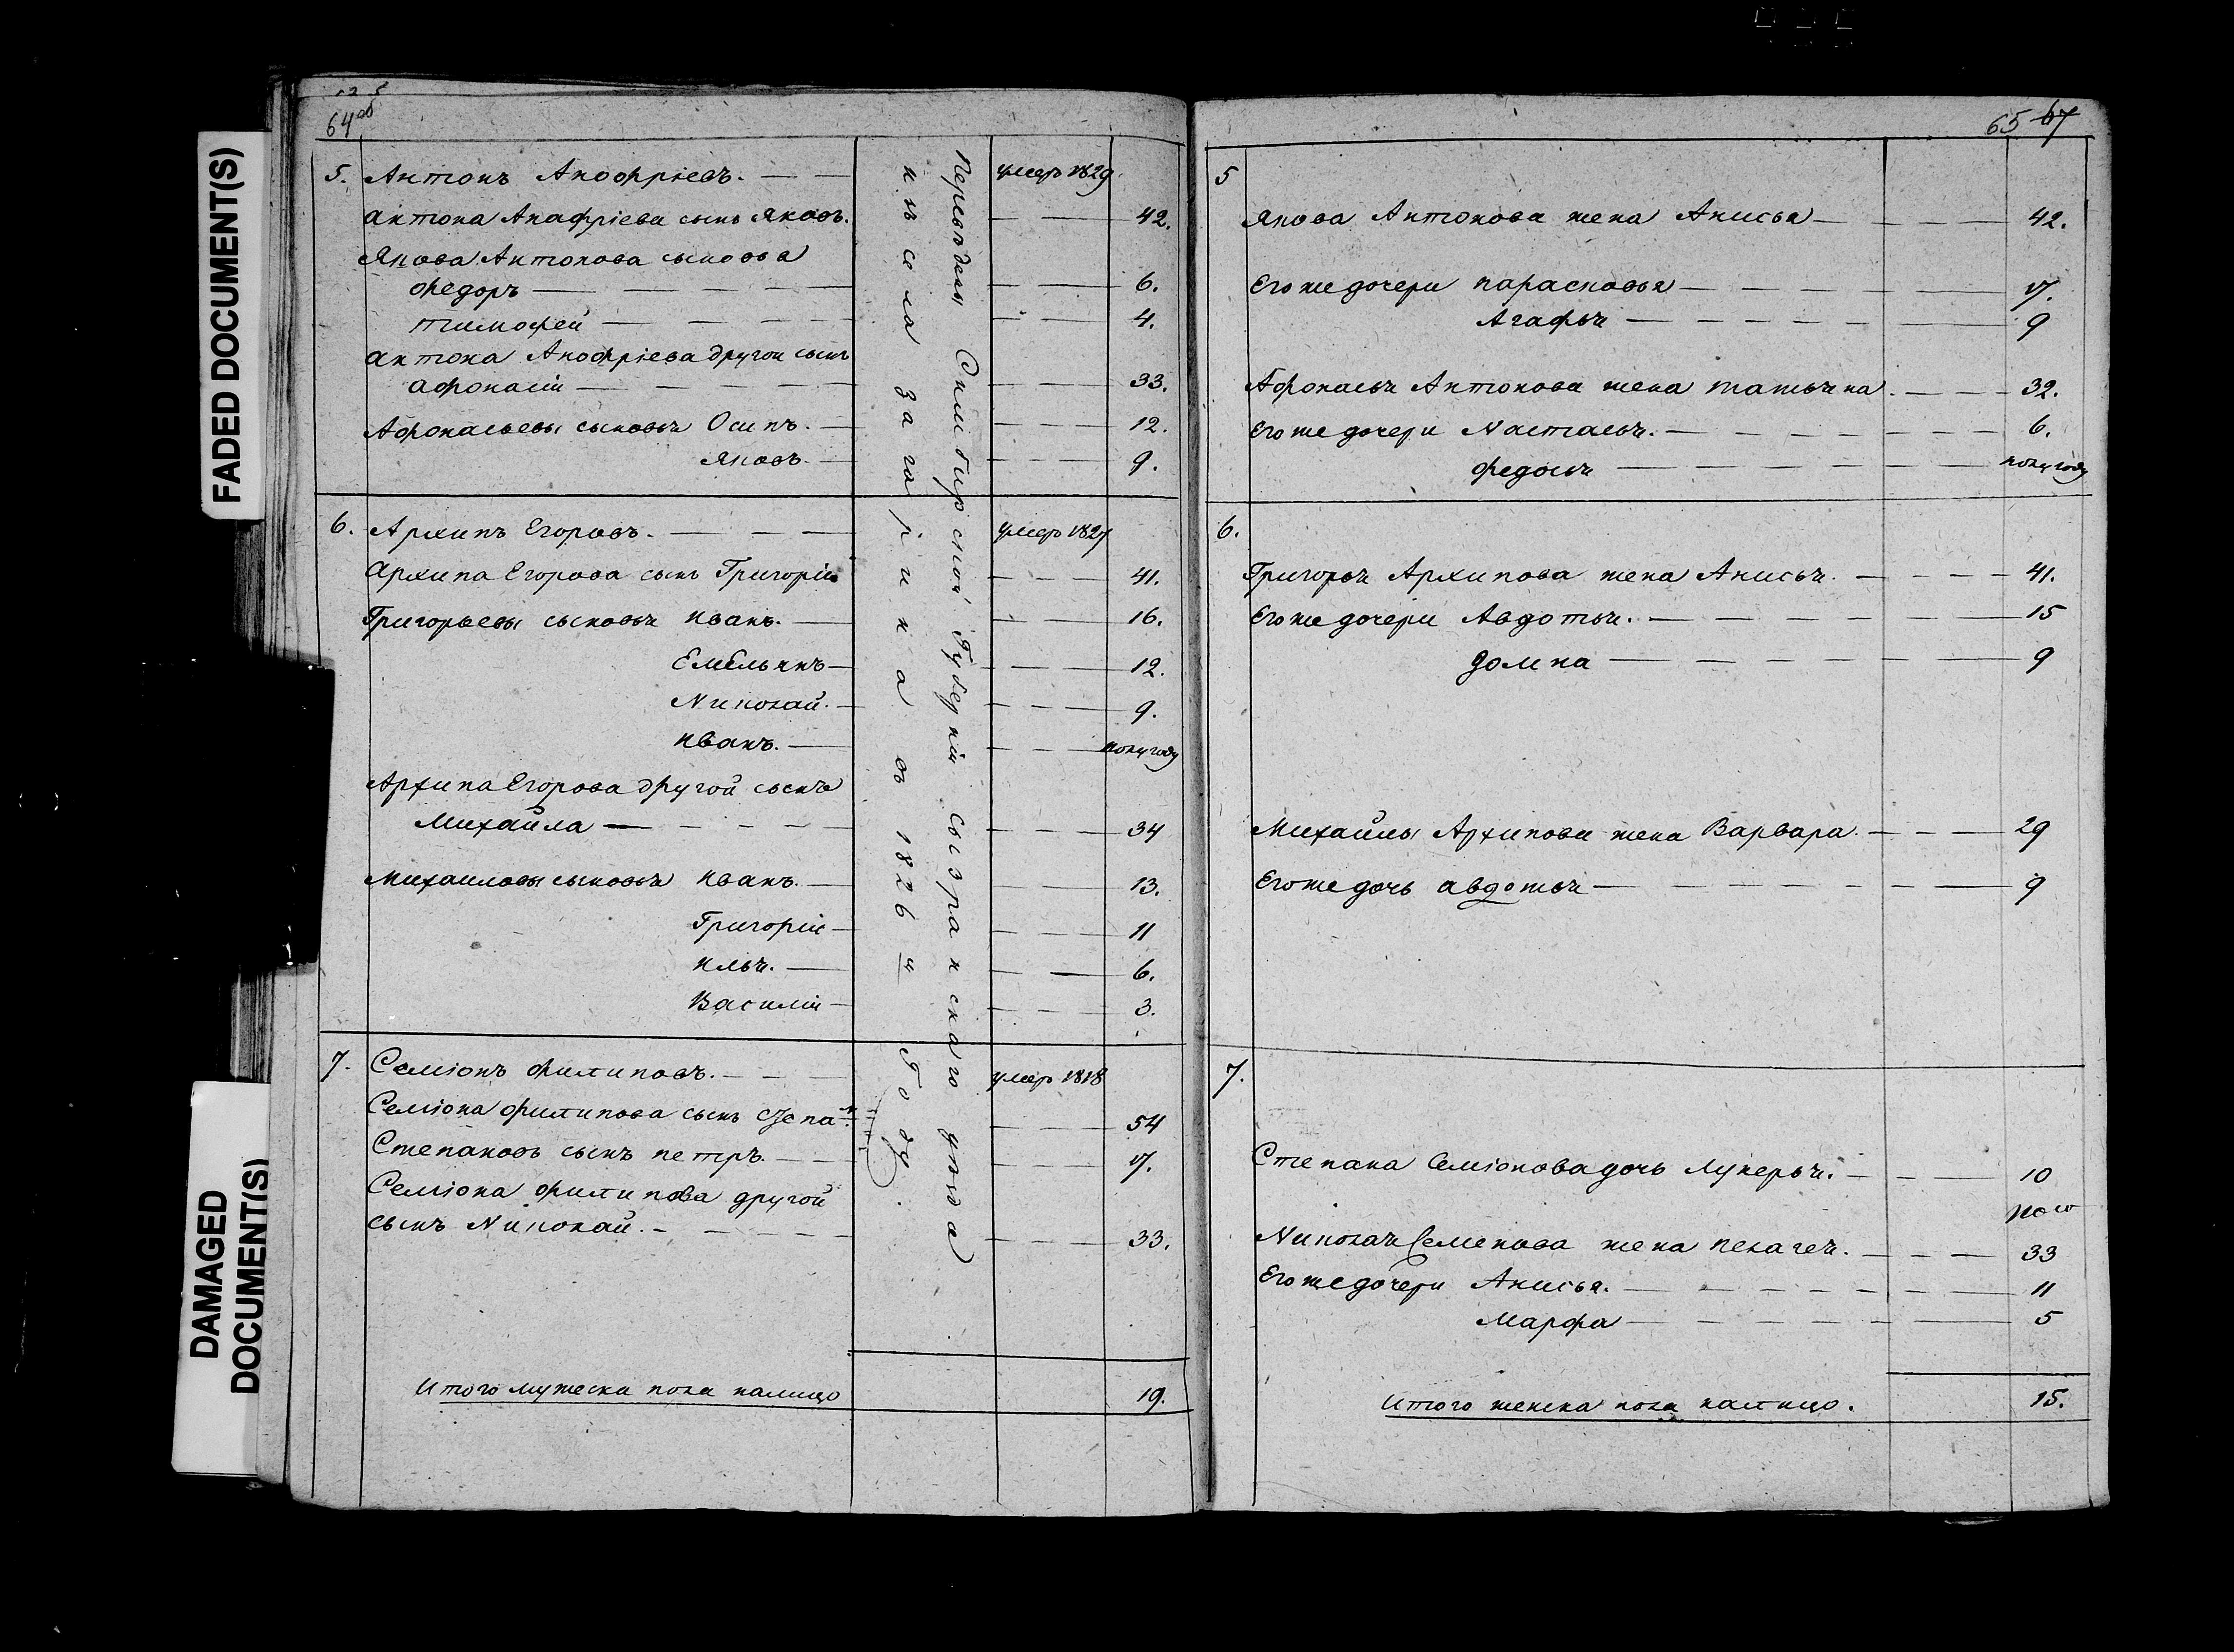 FADED DOCUMENT(S)
DAMAGED
DOCUMENT(S)
64 об
5. Антонъ Анофріевъ. умеръ 1829
Антона Анафріева сынъ Яковъ. 42.
Якова Антонова сыновья
Федоръ 6.
Тимофей 4.
Антона Анофріева другои сынъ
Афонасіи 33.
Афонасьевы сыновья Осипъ. 12.
Яковъ 9.
6. Архипъ Егоровъ. умеръ 1827
Архипа Егорова сынъ Григоріи 41.
Григорьевы сыновья Иванъ. 16.
Емельянъ 12.
Николай. 9.
Иванъ. полугоду
Архипа Егорова другой сынъ
Михайла 34
Михаиловы сыновья Иванъ. 13.
Григоріи 11
Илья. 6.
Василіи 3.
7. Семіонъ Филиповъ. умеръ 1818
Семіона Филипова сынъ Степанъ 54
Степановъ сынъ Петръ. 17.
Семіона Филипова другой
сынъ Николай. 33.
Итого мужеска пола налицо 19.
Переведены Симбирской Губерніи сызранскаго уезда
изъ села загарина въ 1826 м Году.
65 67
5
Якова Антонова жена Анисья 42.
Его же дочери Парасковья 17.
Агафья 9
Афонасья Антонова жена Татьяна 32.
Его же дочери Настасья. 6.
Федосья полугоду
6.
Григорья Архипова жена Анисья. 41.
Его же дочери Авдотья. 15
Домна 9
Михайлы Архипова жена Варвара. 29
Его же дочь Авдотья 9
7.
Степана Семіонова дочь Лукерья. 10
Николая Семенова жена Пелагея. 33
Его же дочери Анисья. 11
Марфа 5
Итого женска пола налицо. 15.